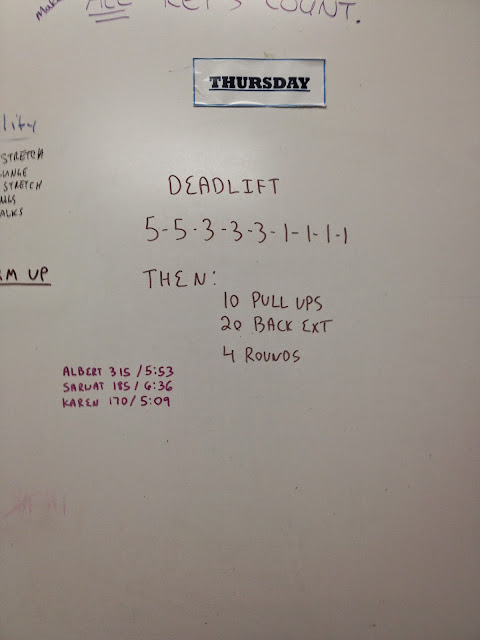 ALL REPS COUNT.
THURSDAY
STRETCH
STRETCH
DEADLIFT
5-5-3-3-3-1-1-1-1
THEN:
10 PULL UPS
20 BACK EXT
4 ROUNDS
UP
ALBERT 315 / 5:53
SARWAT 185 / 6:36
KAREN 170 / 5:09